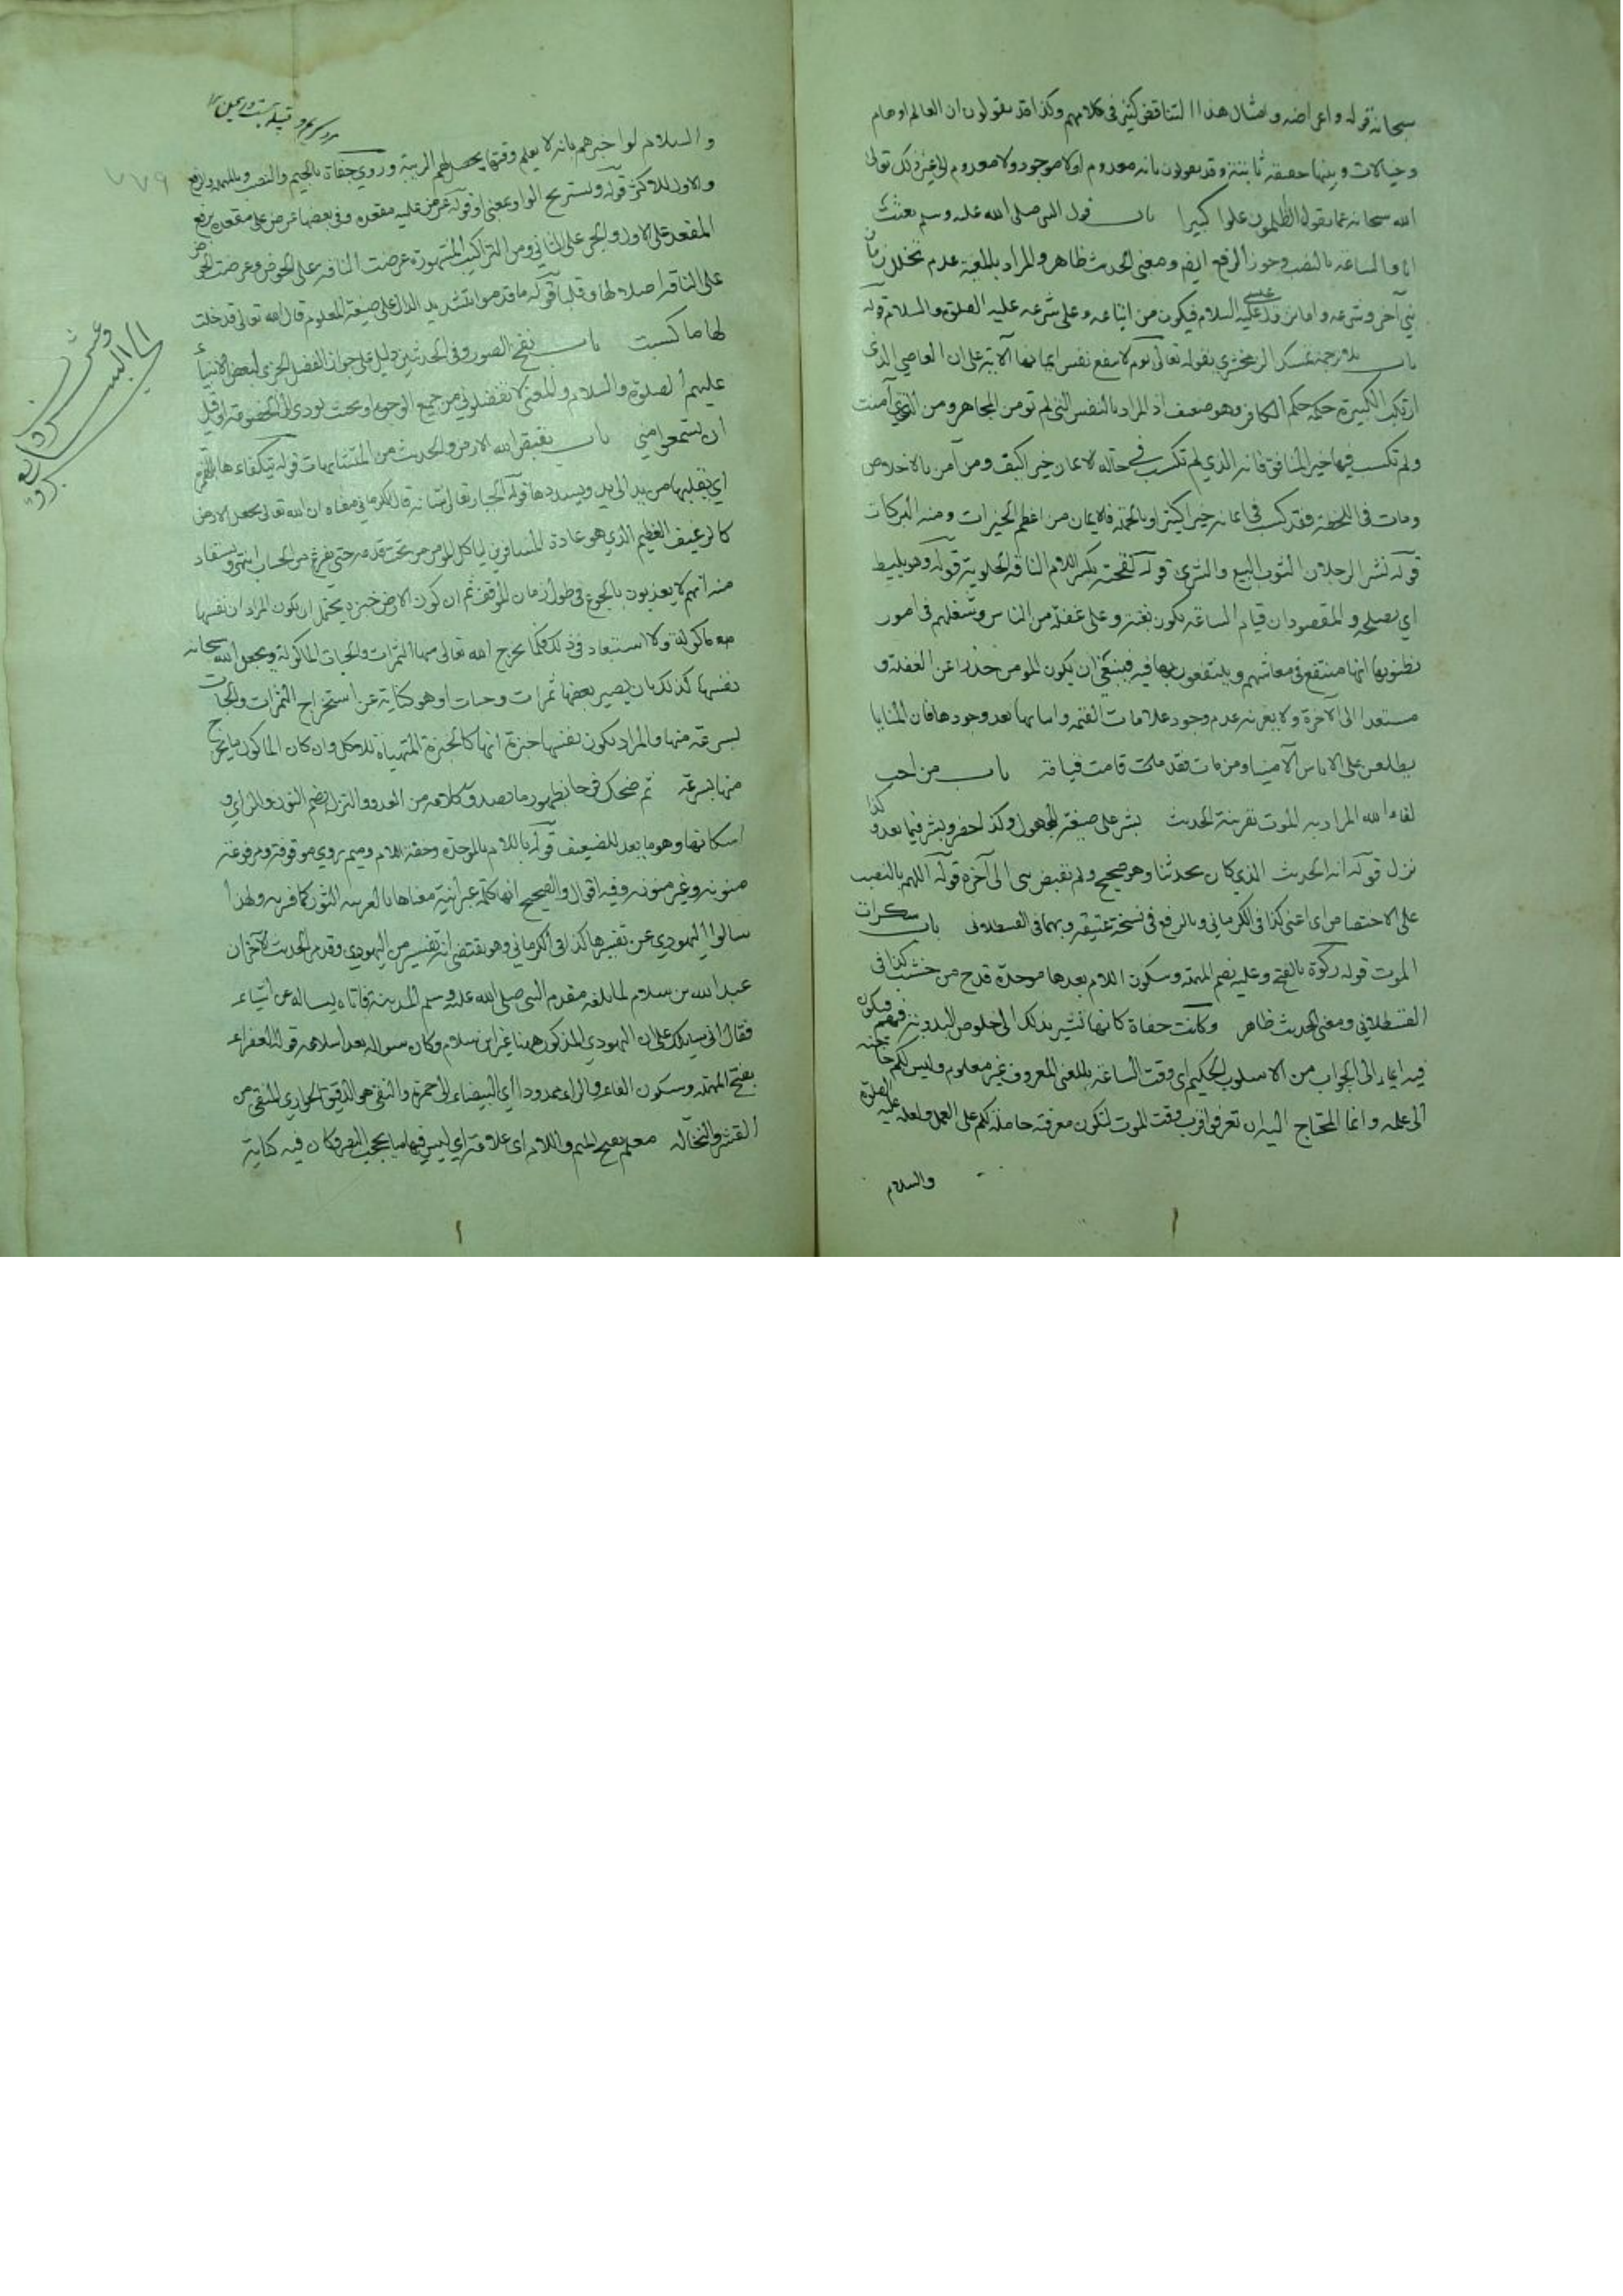 سبحانه قوله واعراضه وامثال هذا التناقض كثير في كلامهم وكذا قد يقولون ان العالم اوهام
وخيالات وبينها حقيقة ثابتة وقد يقولون بانه معدوم او لا موجود ولا معدوم الى غير ذلك تعالى
الله سبحانه عما يقول الظلمون علوا كبيرا باب قول النبي صلى الله عليه وسلم بعثت
انا والساعة بالنصب وجوز الرفع ايض ومعنى الحديث ظاهر والمراد بالمعية عدم تخلل زمان
نبي آخر وشرعه واما نزول عيسى عليه السلام فيكون من اتباعه وعلى شرعه عليه الصلوة والسلام قوله
باب بلا ترجمة تمسك الزمخشري بقوله تعالى يوم لا ينفع نفسا ايمانها الآية على ان العاصي الذي
ارتكب الكبيرة حكمه حكم الكافر وهو ضعيف اذ المراد بالنفس التي لم تومن المجاهر ومن التي آمنت
ولم تكسب فيها خير المنافق فانه الذي لم تكسب في حالة الايمان خيرا كيف ومن آمن بالاخلاص
ومات في اللحظة فقد كسب في ايمانه خيرا كثيرا وبالجملة فالايمان من اعظم الخيرات ومنه البركات
قوله نشر الرجلان الثوب للبيع والشرى قوله لقحته بكسر اللام الناقة الحلوبة قوله وهو يليط
اي يصلحه والمقصود ان قيام الساعة يكون بغتة وعلى غفلة من الناس وشغلهم في امور
يظنونها انها منتفع في معاشهم وينتفعون بها فيه فينبغي ان يكون المومن حذرا عن الغفلة و
مستعدا الى الآخرة ولا يغرنه عدم وجود علامات القيمة واما بها بعد وجودها فان المنايا
يطلعن على الاناس الآمنينا ومن مات فقد قامت قيامته باب من احب
لقاء الله المراد به الموت بقرينة الحديث بشر على صيغة المجهول وكذا حضر وبشر فيما بعد وكذا
نزل قوله انه الحديث الذي كان يحدثنا وهو صحيح ولم يقبض نبي الى آخره قوله اللهم بالنصب
على الاختصاص اي اعني كذا في الكرماني وبالرفع في نسخة عتيقة وبهما في القسطلاني باب سكرات
الموت قوله ركوة بالفتح وعلبة بضم المهملة وسكون اللام بعدها موحدة قدح من خشب كذا في
القسطلاني ومعنى الحديث ظاهر وكانت حفاة كانها تشير بذلك الى خلوص البدوية فيهم فيكون
فيه ايماء الى الجواب من الاسلوب الحكيم اي وقت الساعة بالمعنى المعروف غير معلوم وليس لكم حاجة
الى علمه وانما المحتاج اليه ان تعرفوا قرب وقت الموت لتكون معرفته حاملة لكم على العمل ولعله عليه الصلوة
والسلام
٧٧٩
والسلام لو اخبرهم بانه لا يعلم وقتها يحصل لهم الريبة وروي جفاة بالجيم والنصب وبالمهملة والرفع
والاول للاكثر قوله ويستريح الواو بمعنى او قوله عرض عليه مقعده وفي بعضها عرض على مقعده برفع
المقعد على الاول والجر على الثاني ومن التراكيب المشهورة عرضت الناقة على الحوض وعرضت الحوض
على الناقة اصلا لها وقلبا قوله ما قدموا بتشديد الدال على صيغة المعلوم قال الله تعالى قد خلت
لها ما كسبت باب نفخ الصور وفي الحديثين دليل على جواز الفضل الجزي لبعض الانبياء
عليهم الصلوة والسلام والمعنى لا تفضلوني من جميع الوجوه او بحيث يودي الى الخصومة او قبل
ان يستمعوا مني باب يقبض الله الارض والحديث من المتشابهات قوله يتكفاءها
اي يقلبها من يد الى يد ويسددها قوله الجبار تعالى شانه قال الكرماني معناه ان الله تعالى يجعل الارض
كالرغيف العظيم الذي هو عادة المسافرين لياكل المومن من تحت قدمه حتى يفرغ من الحساب انتهى ويستفاد
منه انهم لا يعذبون بالجوع في طول زمان الموقف ثم ان كون الارض خبزة يحتمل ان يكون المراد ان نفسها
ماكولة ولا استبعاد في ذلك فكما يخرج الله تعالى منها الثمرات والحبات الماكولة ويجعل الله سبحانه
نفسها كذلك بان يصير بعضها ثمرات وحبات او هو كناية عن استخراج الثمرات والحبات
بسرعة منها والمراد بكون نفسها خبزة انها كالخبزة المتهياة للاكل وان كان الماكول ما يخرج
منها بسرعة ثم ضحك فرحا بظهور ما يصدق كلامه من العدو والنزل بضم النون والزاي و
اسكانها وهو ما يعد للضيف قوله بالام بالموحدة وخفة اللام وميم يروي موقوفة ومرفوعة
منونة وغير منونة وفيه اقوال والصحيح انها كلمة عبرانية معناها بالعربية الثور كما فسر به ولهذا
سالوا اليهودي عن تفسيرها كذا في الكرماني وهو يقتضي انه تفسير من اليهودي وقد مر الحديث لآخر ان
عبد الله بن سلام لما بلغه مقدم النبي صلى الله عليه وسلم المدينة فاتاه يساله عن اشياء
فقال اني سايلك على ان اليهودي المذكور ههنا غير ابن سلام وكان سواله بعد اسلامه قوله العفراء
بفتح المهملة وسكون الفاء والراء ممدودا اي البيضاء الى حمرة والنقي هو الدقيق الحواري المنقى من
القشر والنخالة معلم بفتح الميم واللام اي علامة اي ليس فيها ما يحجب البصر وكان فيه كناية